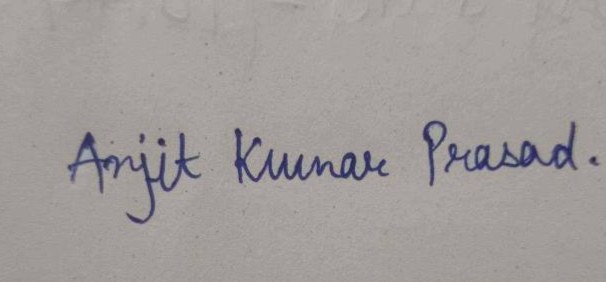 Anjit Kumar Prasad.